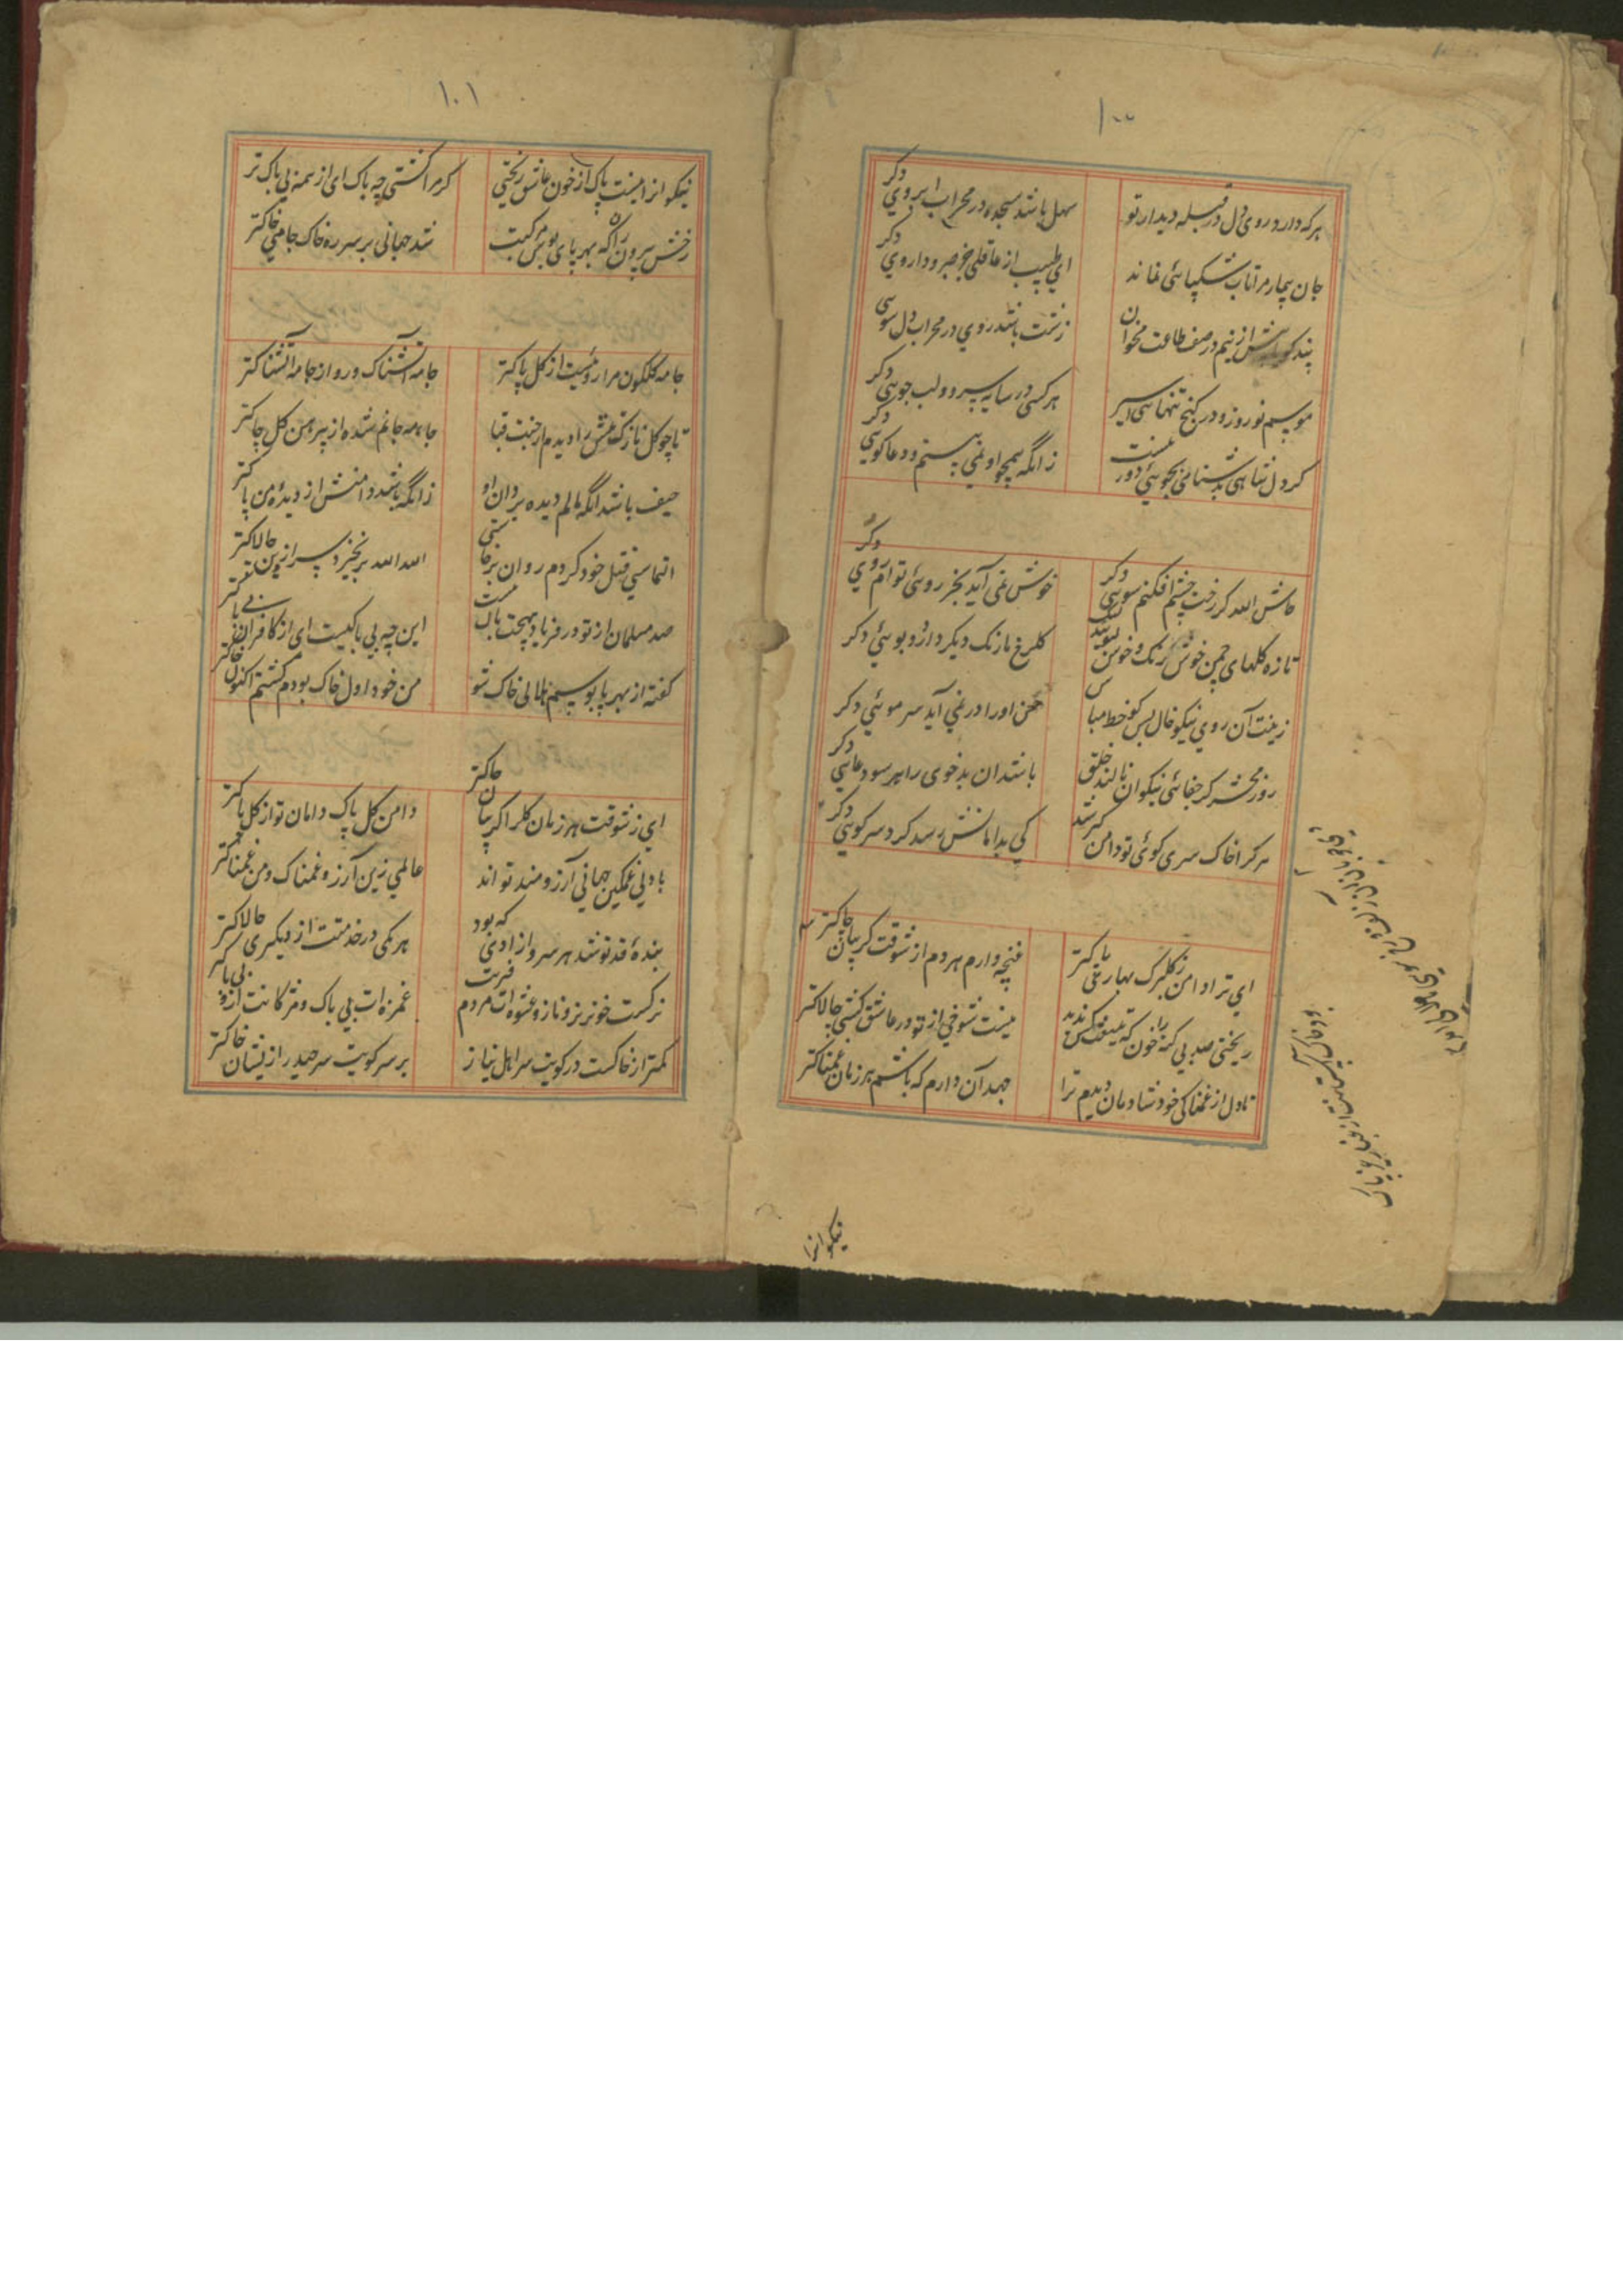 ۱۰۰
هر که دارد روی دل در قبله دیدار تو سهل باشد سجده در محراب ابروی دکر
جان بیمار مرا تاب شکیبائی نماند ای طبیب از عاقلی جز صبر و داروی دکر
پند کو در صف طاعت مخوان زشت باشد روی در محراب دل سوی
موسم نوروز و در کنج تنهائی اسیر هر کسی در سایه سرو و لب جوئی دکر
زانکه همچو او نمی بینم و دعا کوئی دکر
حاش الله کز رخت چشم افکنم سوئی دکر خوش نمی آید بجز روئی توام روی دکر
تازه کلهای چمن خوش رنک و خوش بویند کلرخ ما رنک دیکر دارد و بوئی دکر
زینت آن روی نیکو خال بس کو خط مباش حسن او را در نمی آید سر موئی دکر
روز محشر کز جفائی نیکوان نالند خلق باشد آن بدخوی را هر سو دعائی دکر
هر کرا خاک سری کوئی تو دامن کیر شد کی بدامانش رسد کرد سر کوئی دکر
ای ترا دامن ز کلبرک بهاری پاکتر غنچه وارم هر دم از شوقت کریبان چاکتر
ریختی صد بی کنه را خون که نیست شوخی از تو در عاشق کشی چالاکتر
تا دل از غمناکی خود شادمان دیدم ترا جهد آن دارم که باشم هر زمان غمناکتر
نیکوانرا
۱۰۱
نیکوانرا نیست باک از خون عاشق ریختن کر مرا کشتی چه باک ای از همه بی باک تر
رخش بیرون ران که بهر پای بوس مرکبت شد جهانی بر سر ره خاک جامی خاکتر
جامه کلکون مرا روئیست از کل پاکتر جامه آتشناک و رو از جامه آتشناکتر
تا چو کل نازک تنش را دیدم از جنب قبا جامه جانم شده از پیرهن کل چاکتر
حیف باشد آنکه مالم دیده بر دامان او زانکه باشد دامنش از دیده من پاکتر
التماس قتل خود کردم روان برخاستی الله الله برنخیزد سرو ازین چالاکتر
صد مسلمان از تو در فریاد هیچت باک نیست این چه بی باکیست ای از کافران بی باکتر
کفته از بهر پابوسم هلالی خاک شو من خود اول خاک بودم کشتم اکنون خاکتر
ای ز شوقت هر زمان کل را کریبان چاکتر دامن کل پاک و دامان تو از کل پاکتر
با دلی غمکین جهانی آرزومند تواند عالمی زین آرزو غمناک و من غمناکتر
بندهٔ قد تو شد هر سرو آزادی که بود هر یکی در خدمتت از دیکری چالاکتر
نرکست خونریز و ناز و عشوه ات مردم فریب غمزه ات بی باک و مژکانت ازو بی باکتر
کمتر از خاکست در کویت سر اهل نیاز بر سر کویت سر حیدر ازیشان خاکتر